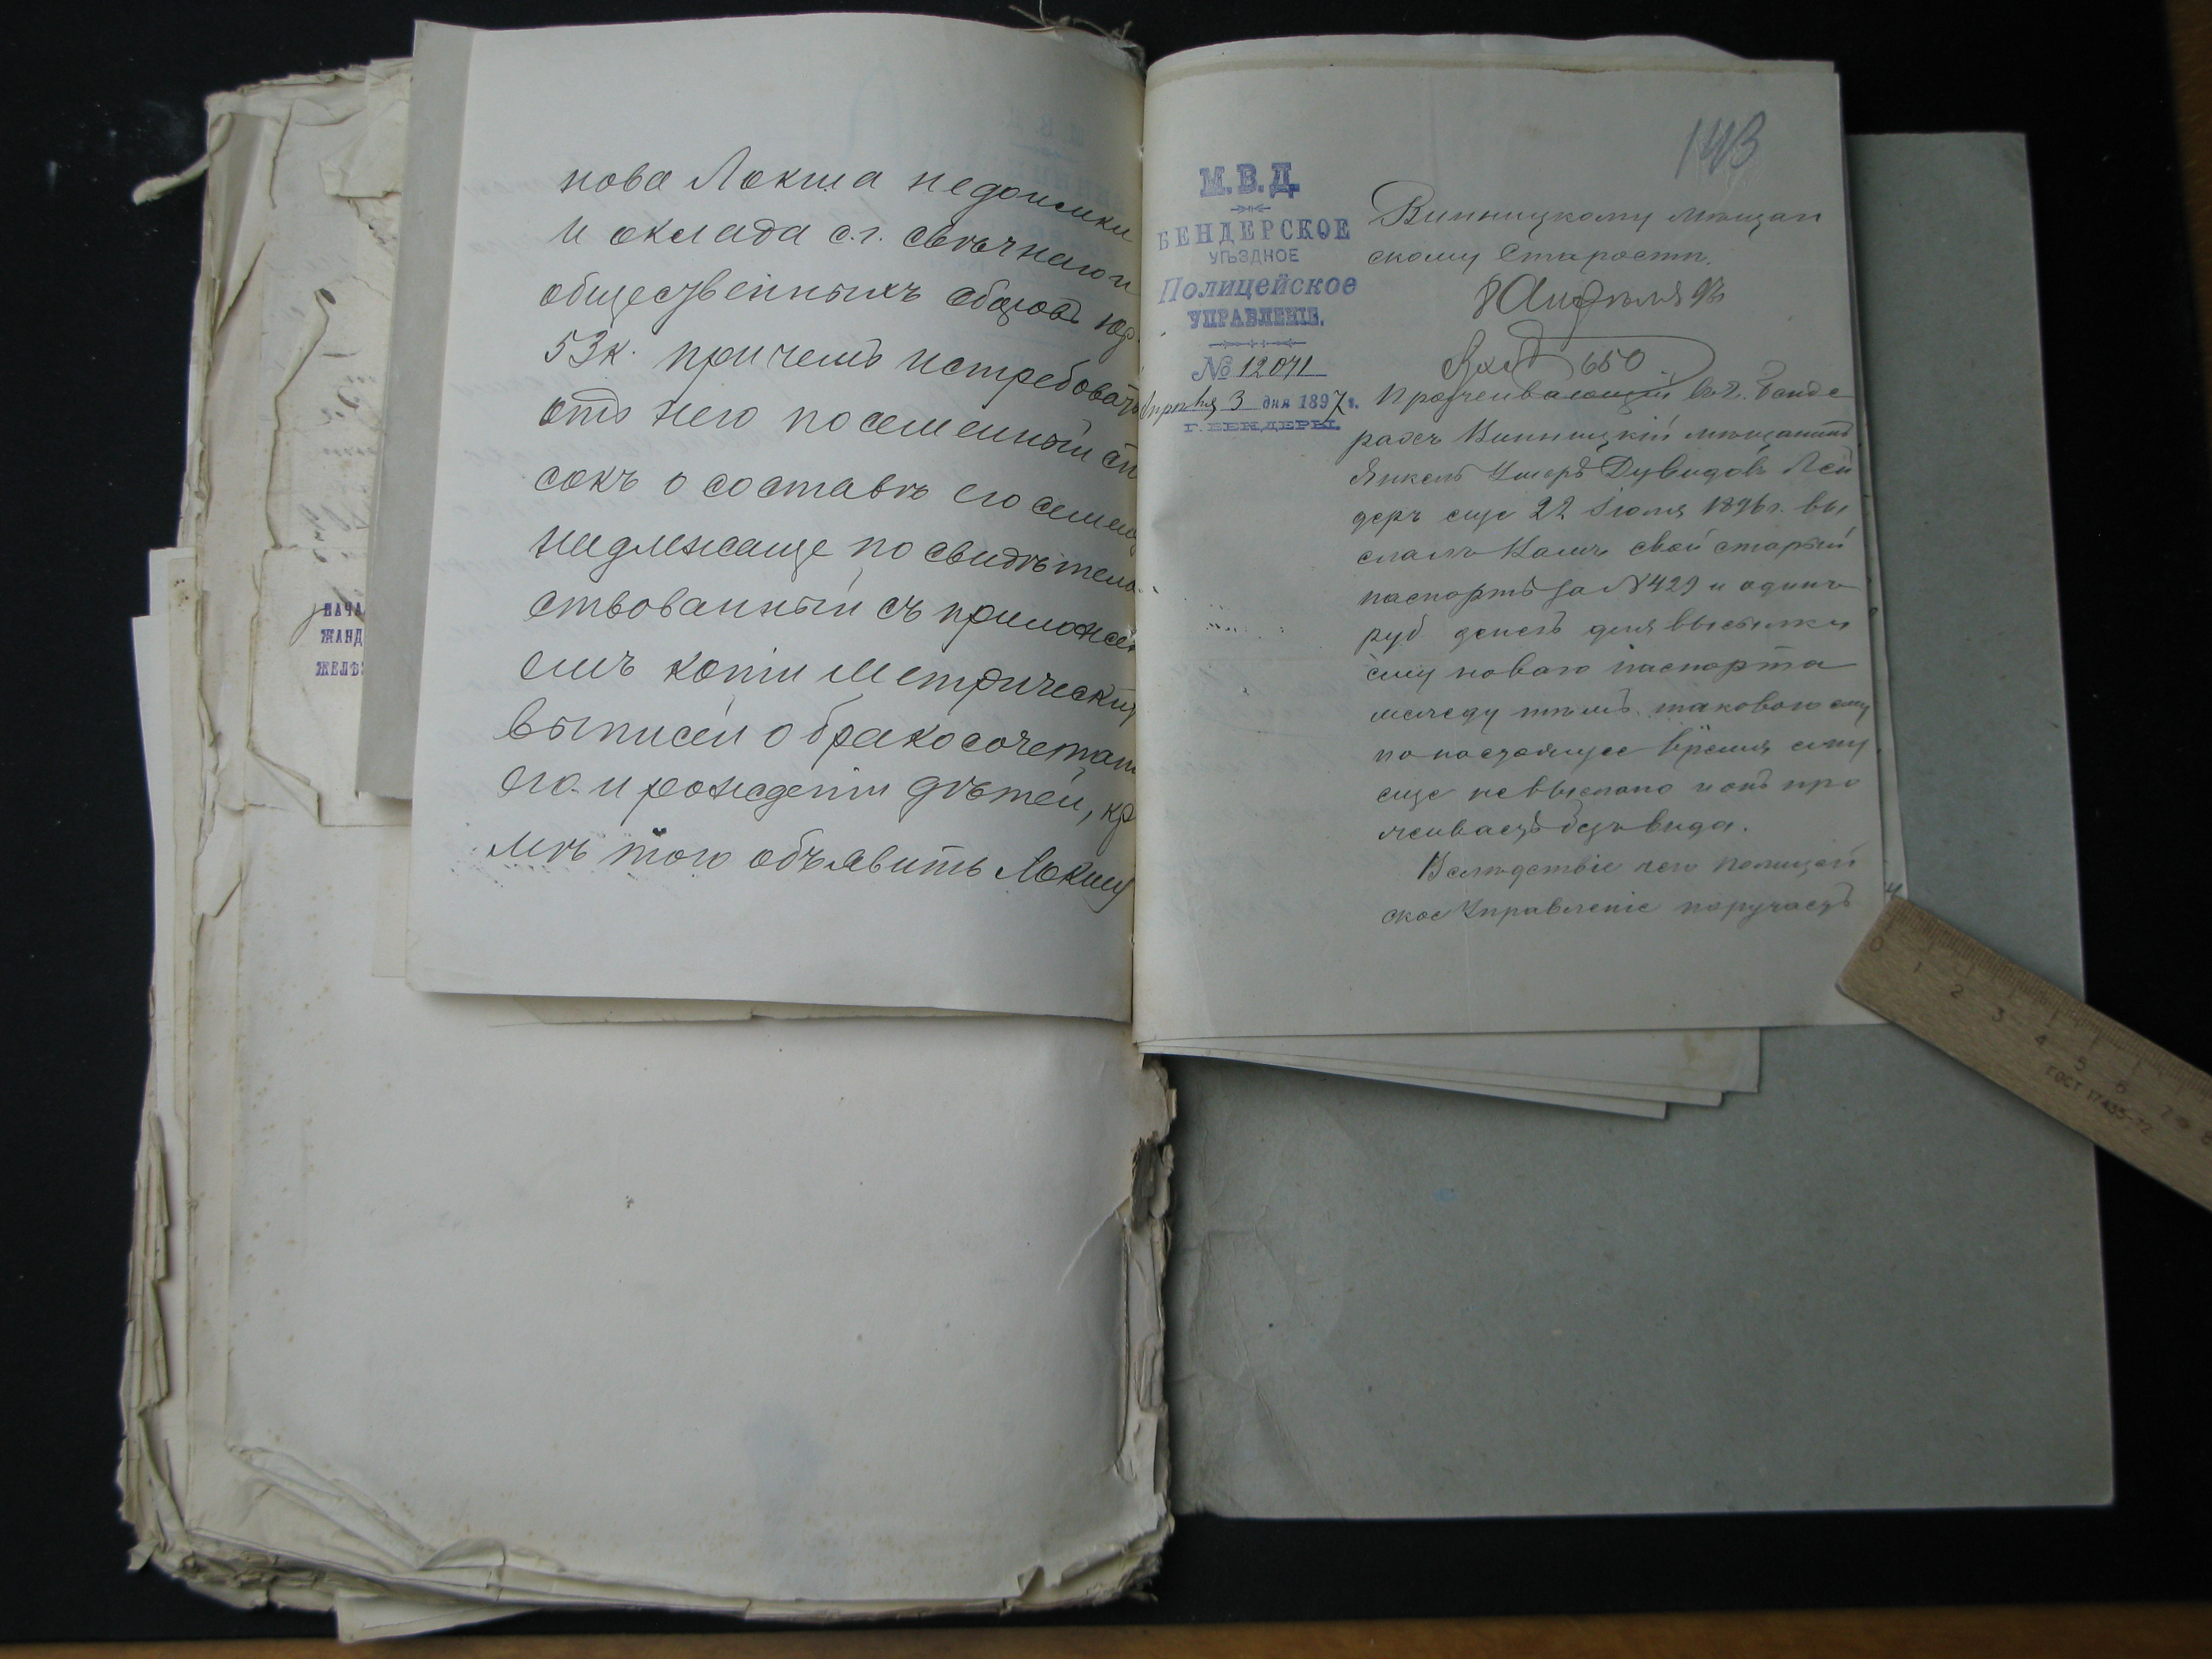 нова Локша недоимки
и оклада с.г. свѣчнаго и
общественныхъ сборовъ
53 к. причемъ истребовать
отъ него посемейный спи
сокъ о составѣ его семей
надлежаще по свидѣтель
ствованный съ приложен
емъ копіи метрических
выписей о бракосочетан
его и рожденіи дѣтей, кр
мѣ того объявить Локшу
НАЧА
ЖАНД
ЖЕЛѢ
143
М.В.Д.
БЕНДЕРСКОЕ
УѢЗДНОЕ
Полицейское
УПРАВЛЕНІЕ.
№ 12071
Апрѣля 3 дня 1897 г.
Г. БЕНДЕРЫ.
Винницкому мѣщан
скому Старостѣ.
8 Апрѣля 97
Вход 650
Проживающій въ г. Банде
рахъ Винницкій мѣщанинъ
Янкель Ушеръ Дувидовъ Лей
деръ еще 22 Іюля 1896 г. вы
слалъ Вамъ свой старый
паспортъ за № 429 и одинъ
руб денегъ для высылки
ему новаго паспорта
между тѣмъ таковаго ему
по настоящее время ему
еще не выслано и онъ про
живаетъ безъ вида.
Вслѣдствіе чего Полицей
ское Управленіе поручаетъ
0 1 2 3 4 5 6 7 8
ГОСТ 17435-72